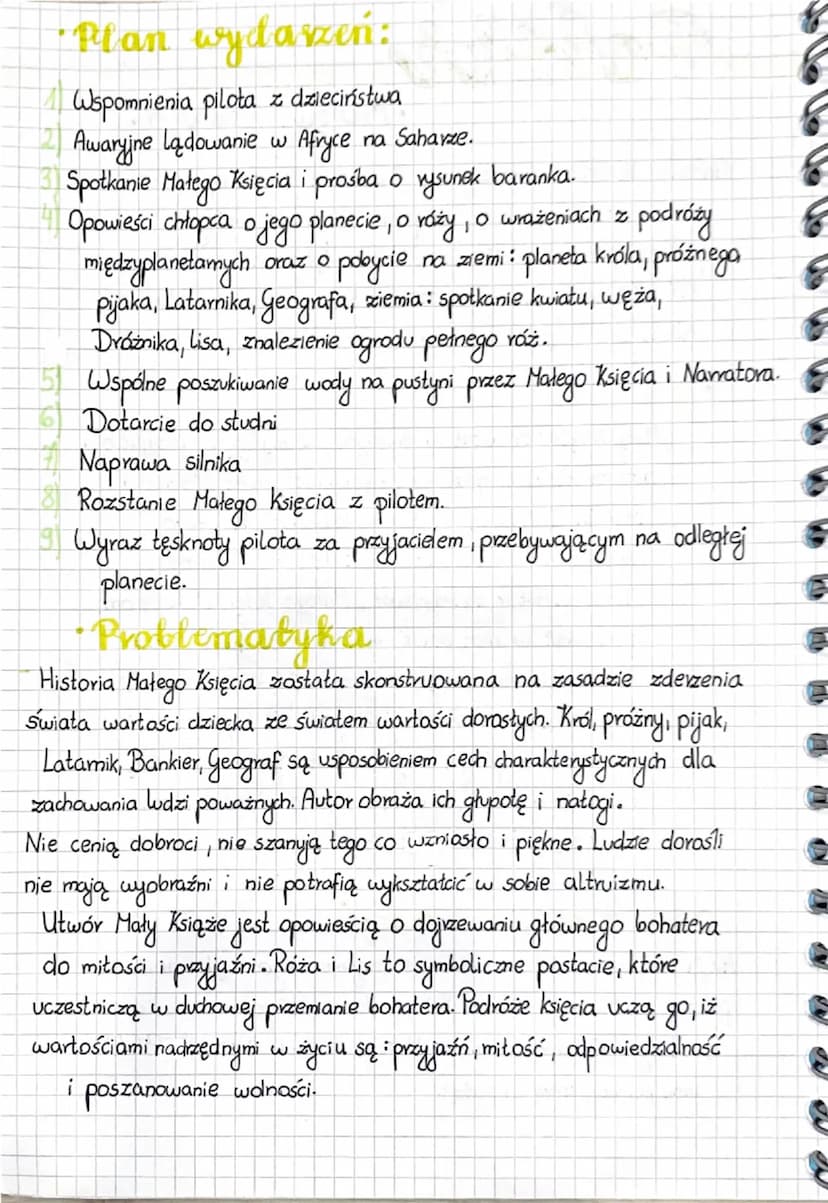 • Plan wydarzeń:
1) Wspomnienia pilota z dzieciństwa
2) Awaryjne lądowanie w Afryce na Saharze.
3) Spotkanie Małego Księcia i prośba o rysunek baranka.
4) Opowieści chłopca o jego planecie, o róży, o wrażeniach z podróży
międzyplanetarnych oraz o pobycie na ziemi: planeta króla, próżnego
pijaka, Latarnika, Geografa, ziemia: spotkanie kwiatu, węża,
Dróżnika, Lisa, znalezienie ogrodu pełnego róż.
5) Wspólne poszukiwanie wody na pustyni przez Małego Księcia i Narratora.
6) Dotarcie do studni
7) Naprawa silnika
8) Rozstanie Małego Księcia z pilotem.
9) Wyraz tęsknoty pilota za przyjacielem, przebywającym na odległej
planecie.
• Problematyka
Historia Małego Księcia została skonstruowana na zasadzie zderzenia
świata wartości dziecka ze światem wartości dorosłych. Król, próżny, pijak,
Latarnik, Bankier, Geograf są usposobieniem cech charakterystycznych dla
zachowania ludzi poważnych. Autor obraża ich głupotę i nałogi.
Nie cenią dobroci, nie szanują tego co wzniosło i piękne. Ludzie dorośli
nie mają wyobraźni i nie potrafią wykształcić w sobie altruizmu.
Utwór Mały Książe jest opowieścią o dojrzewaniu głównego bohatera
do miłości i przyjaźni. Róża i Lis to symboliczne postacie, które
uczestniczą w duchowej przemianie bohatera. Podróże księcia uczą go, iż
wartościami nadrzędnymi w życiu są: przyjaźń, miłość, odpowiedzialność
i poszanowanie wolności.